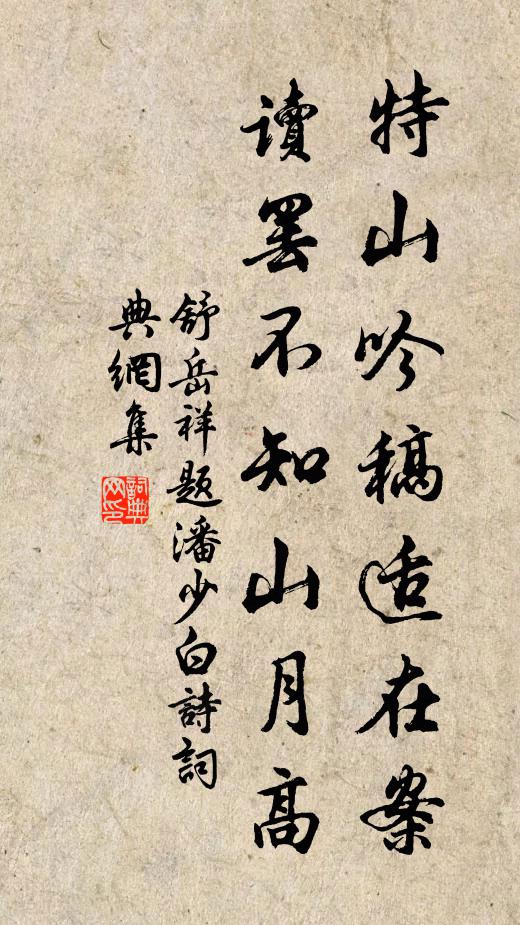 特山吟稿适在案
讀罢不知山月高
舒岳祥题潘少白詩詞
典網集
詞典网印